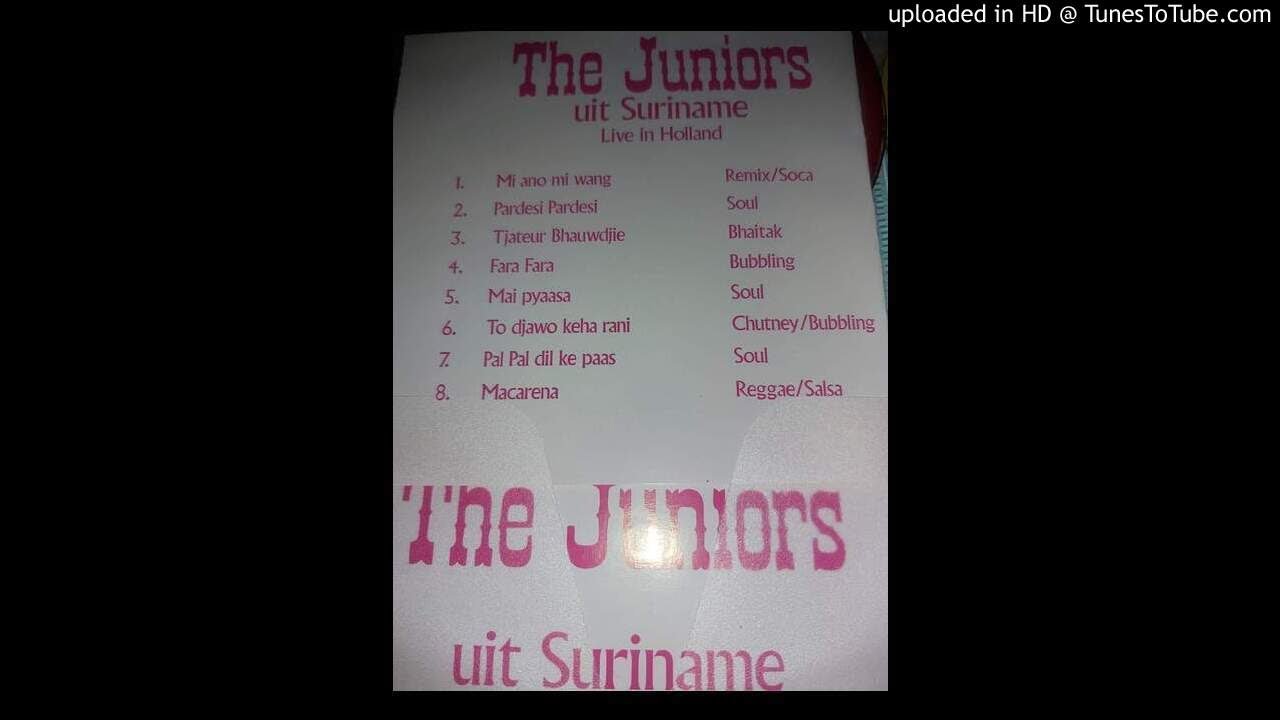 uploaded in HD @ TunesToTube.com
The Juniors
uit Suriname
Live in Holland
1. Mi ano mi wang Remix/Soca
2. Pardesi Pardesi Soul
3. Tjateur Bhauwdjie Bhaitak
4. Fara Fara Bubbling
5. Mai pyaasa Soul
6. To djawo keha rani Chutney/Bubbling
7. Pal Pal dil ke paas Soul
8. Macarena Reggae/Salsa
The Juniors
uit Suriname